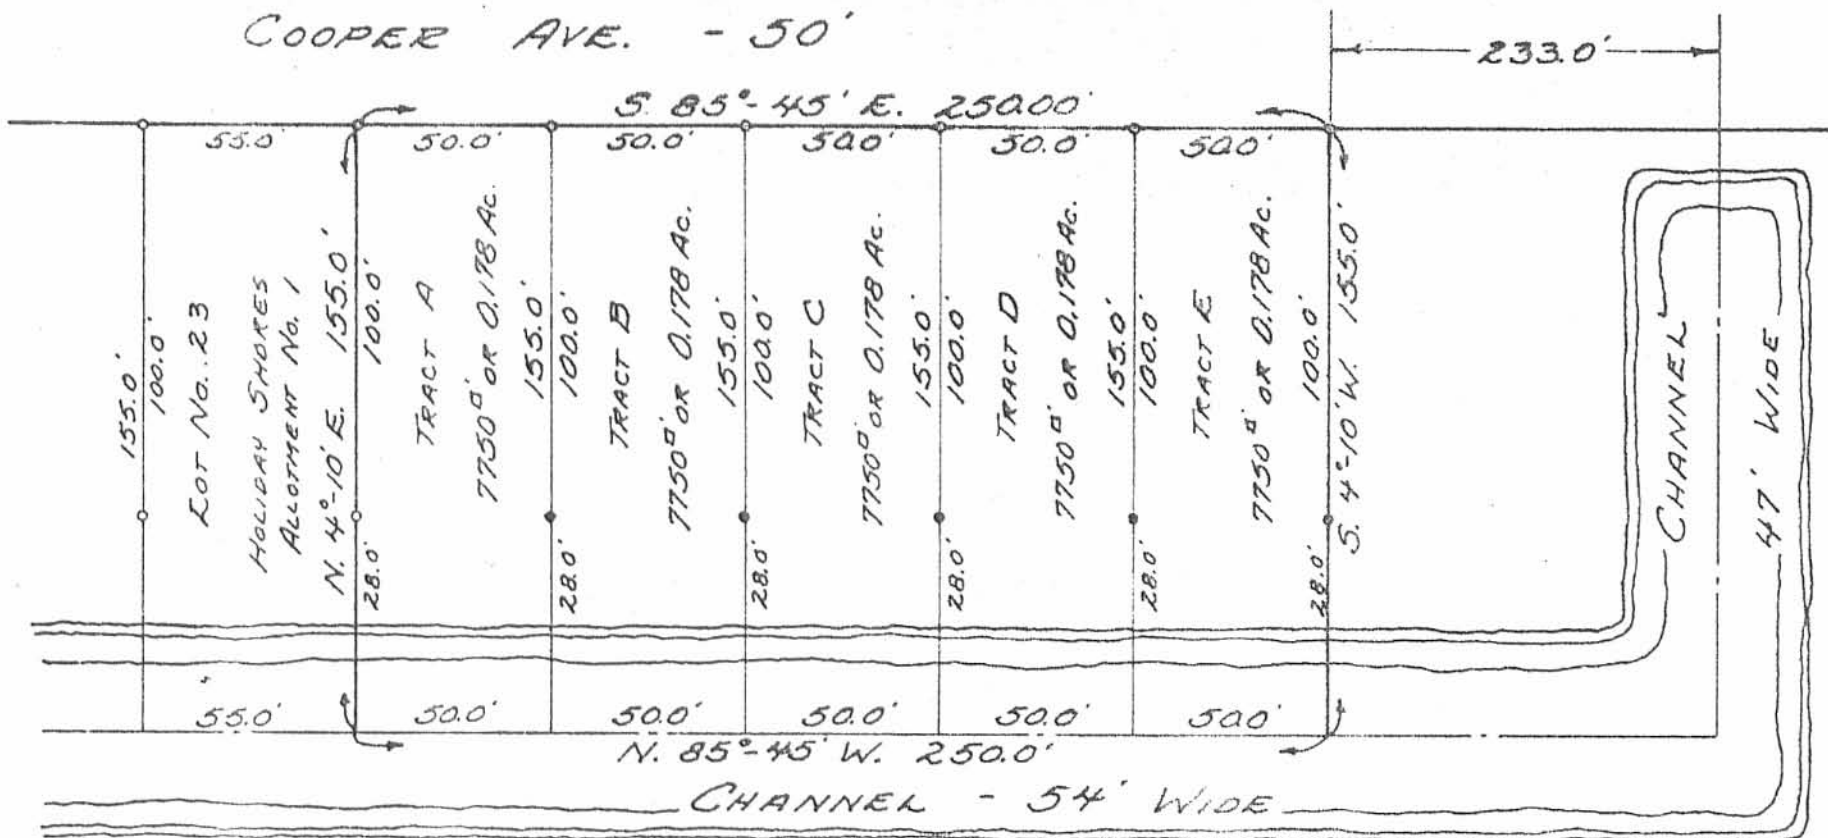 COOPER AVE. - 50'
233.0'
S. 85°-45' E. 250.00'
55.0'
50.0'
50.0'
50.0'
50.0'
50.0'
155.0'
100.0'
LOT No. 23
HOLIDAY SHORES
ALLOTMENT No. 1
N. 4°-10' E. 155.0'
100.0'
28.0'
TRACT A
7750□' OR 0.178 Ac.
155.0'
100.0'
28.0'
TRACT B
7750□' OR 0.178 Ac.
155.0'
100.0'
28.0'
TRACT C
7750□' OR 0.178 Ac.
155.0'
100.0'
28.0'
TRACT D
7750□' OR 0.178 Ac.
155.0'
100.0'
28.0'
TRACT E
7750□' OR 0.178 Ac.
100.0'
28.0'
S. 4°-10' W. 155.0'
CHANNEL
47' WIDE
55.0'
50.0'
50.0'
50.0'
50.0'
50.0'
N. 85°-45' W. 250.0'
CHANNEL - 54' WIDE